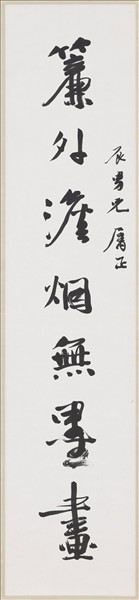 簾外澹烟無墨畫
辰男兄屬正